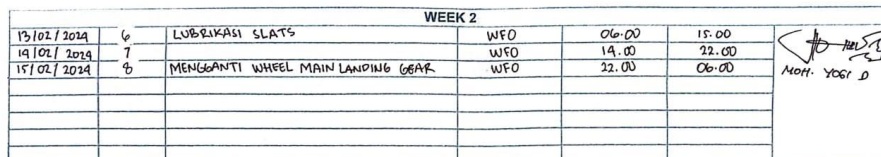 WEEK 2
13/02/2024 6 LUBRIKASI SLATS WFO 06.00 15.00
14/02/2024 7 WFO 14.00 22.00
15/02/2024 8 MENGGANTI WHEEL MAIN LANDING GEAR WFO 22.00 06.00
MOH. YOGI D